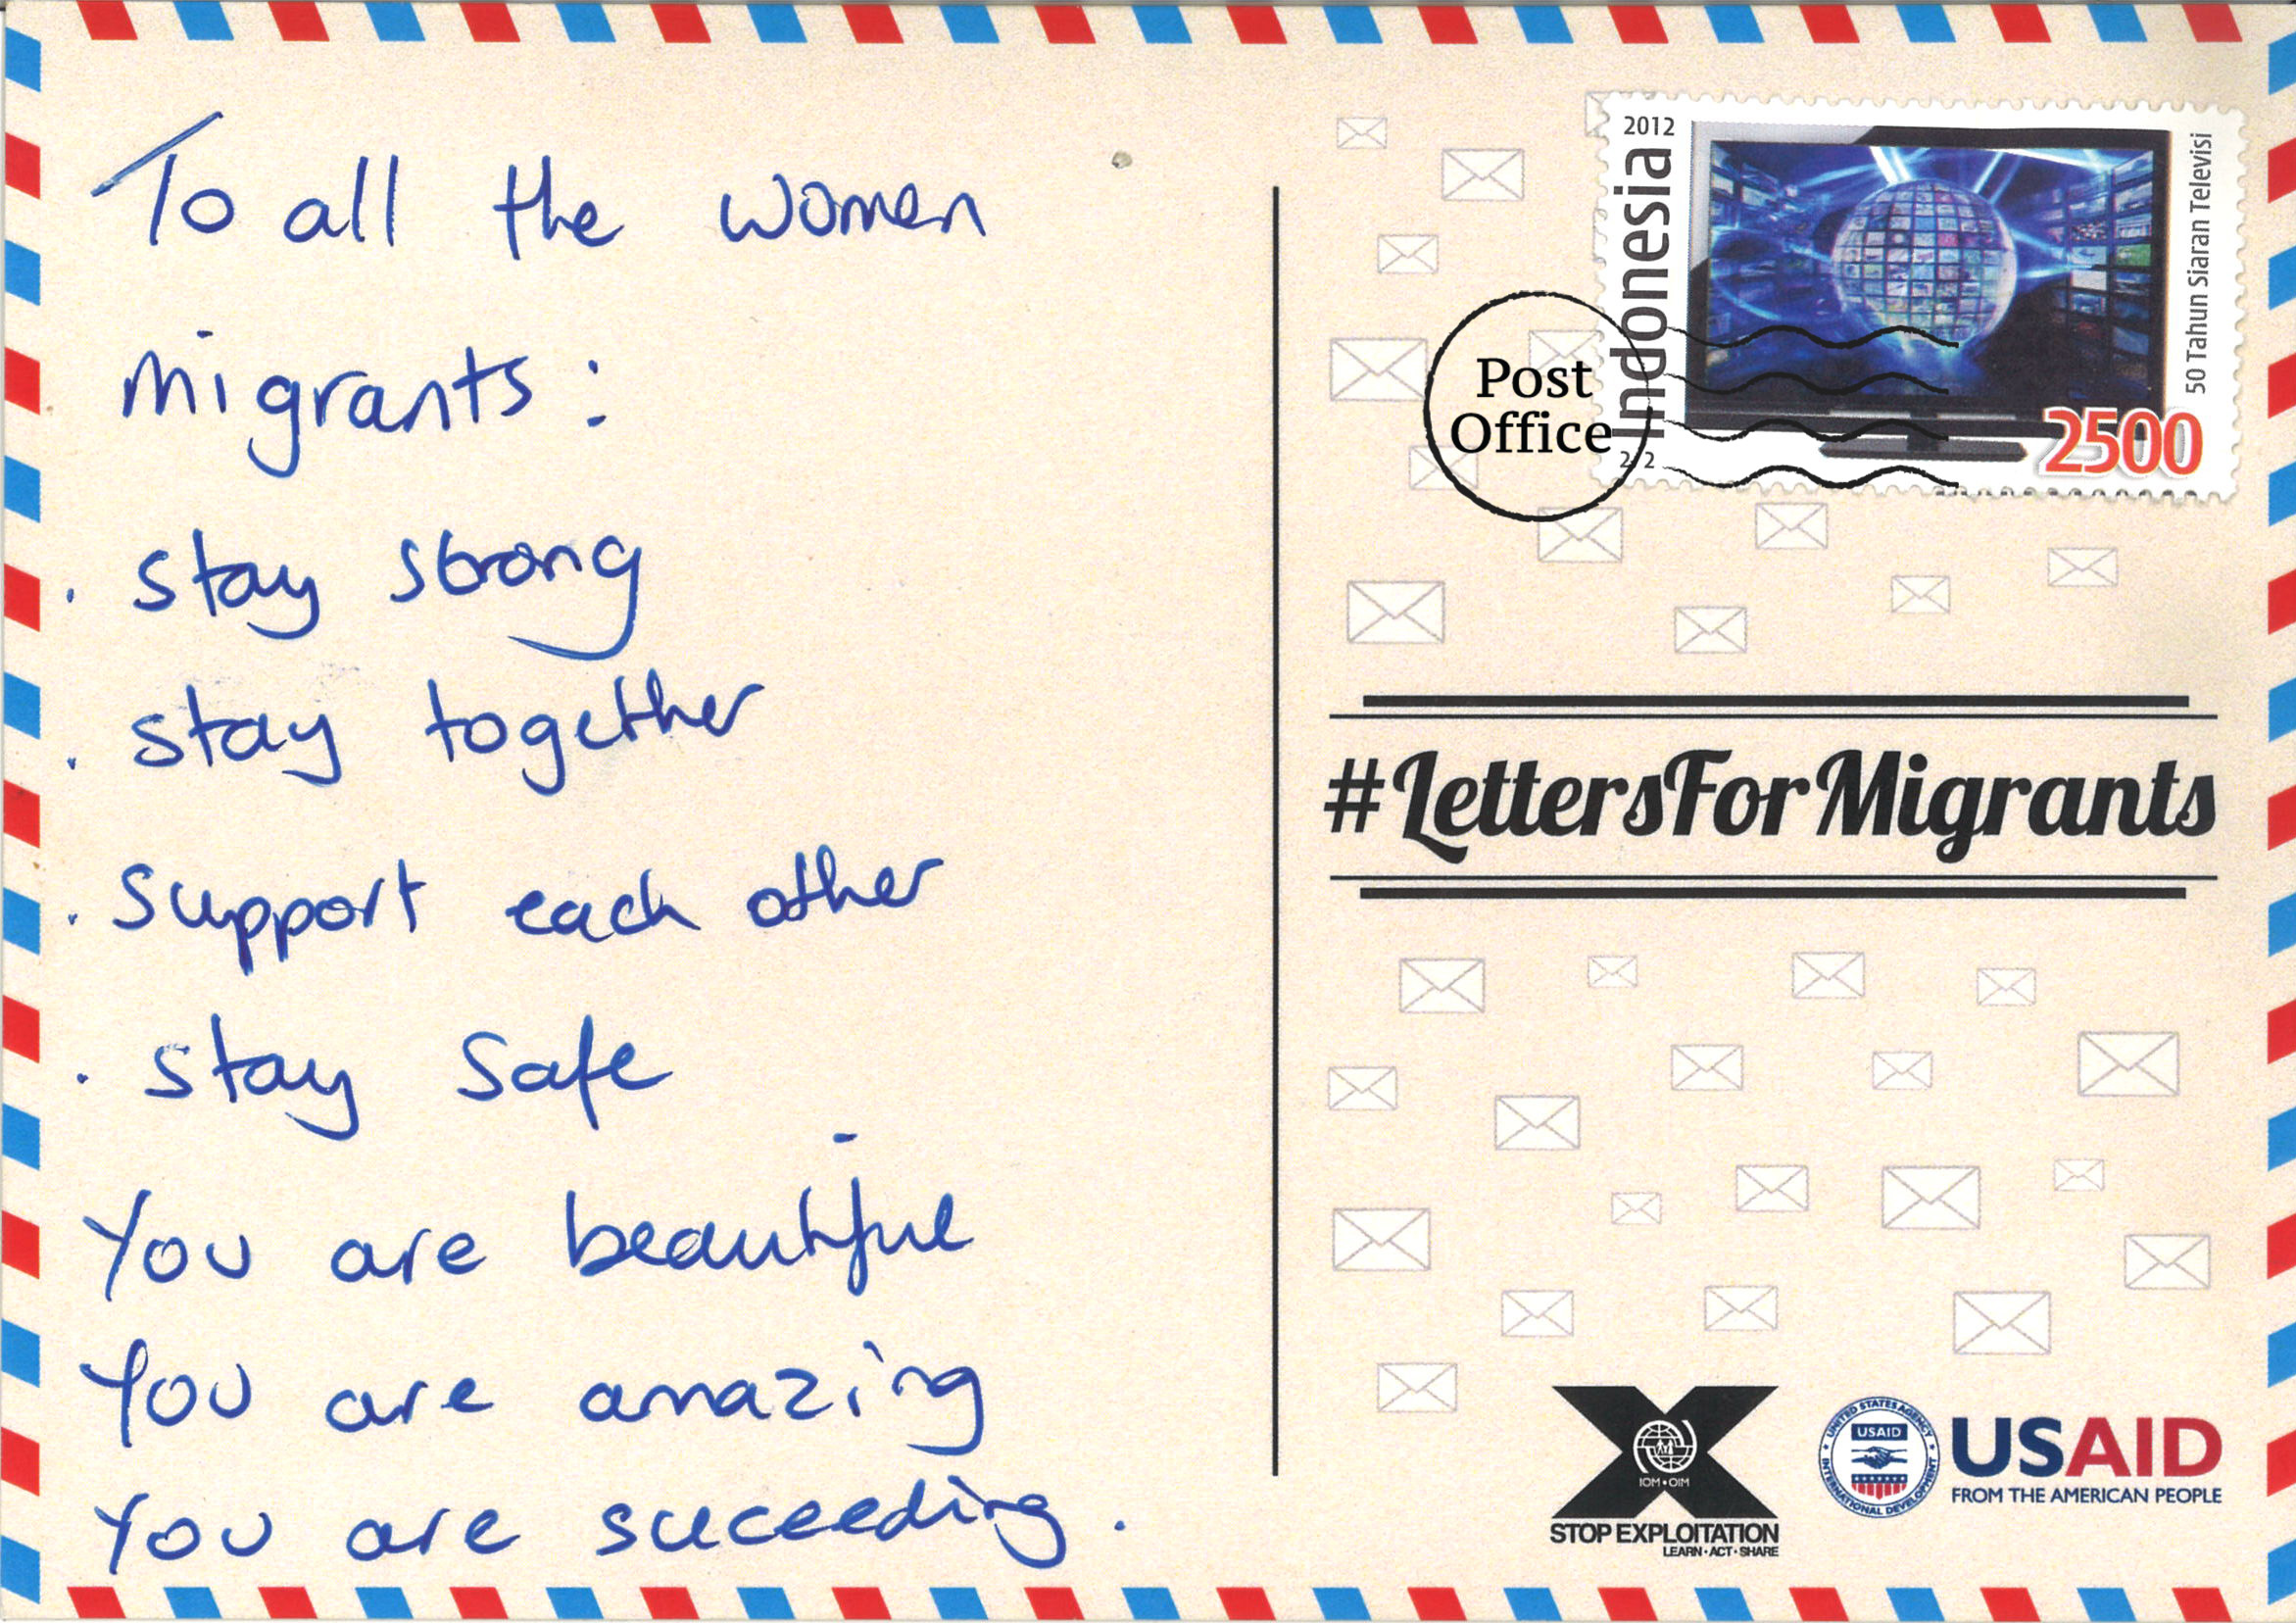 To all the women
migrants:
. stay strong
. stay together
. support each other
. stay safe
You are beautiful
You are amazing
You are succeeding.
2012
Indonesia
50 Tahun Siaran Televisi
2500
Post
Office
#LettersForMigrants
IOM • OIM
STOP EXPLOITATION
LEARN • ACT • SHARE
UNITED STATES AGENCY
USAID
INTERNATIONAL DEVELOPMENT
USAID
FROM THE AMERICAN PEOPLE